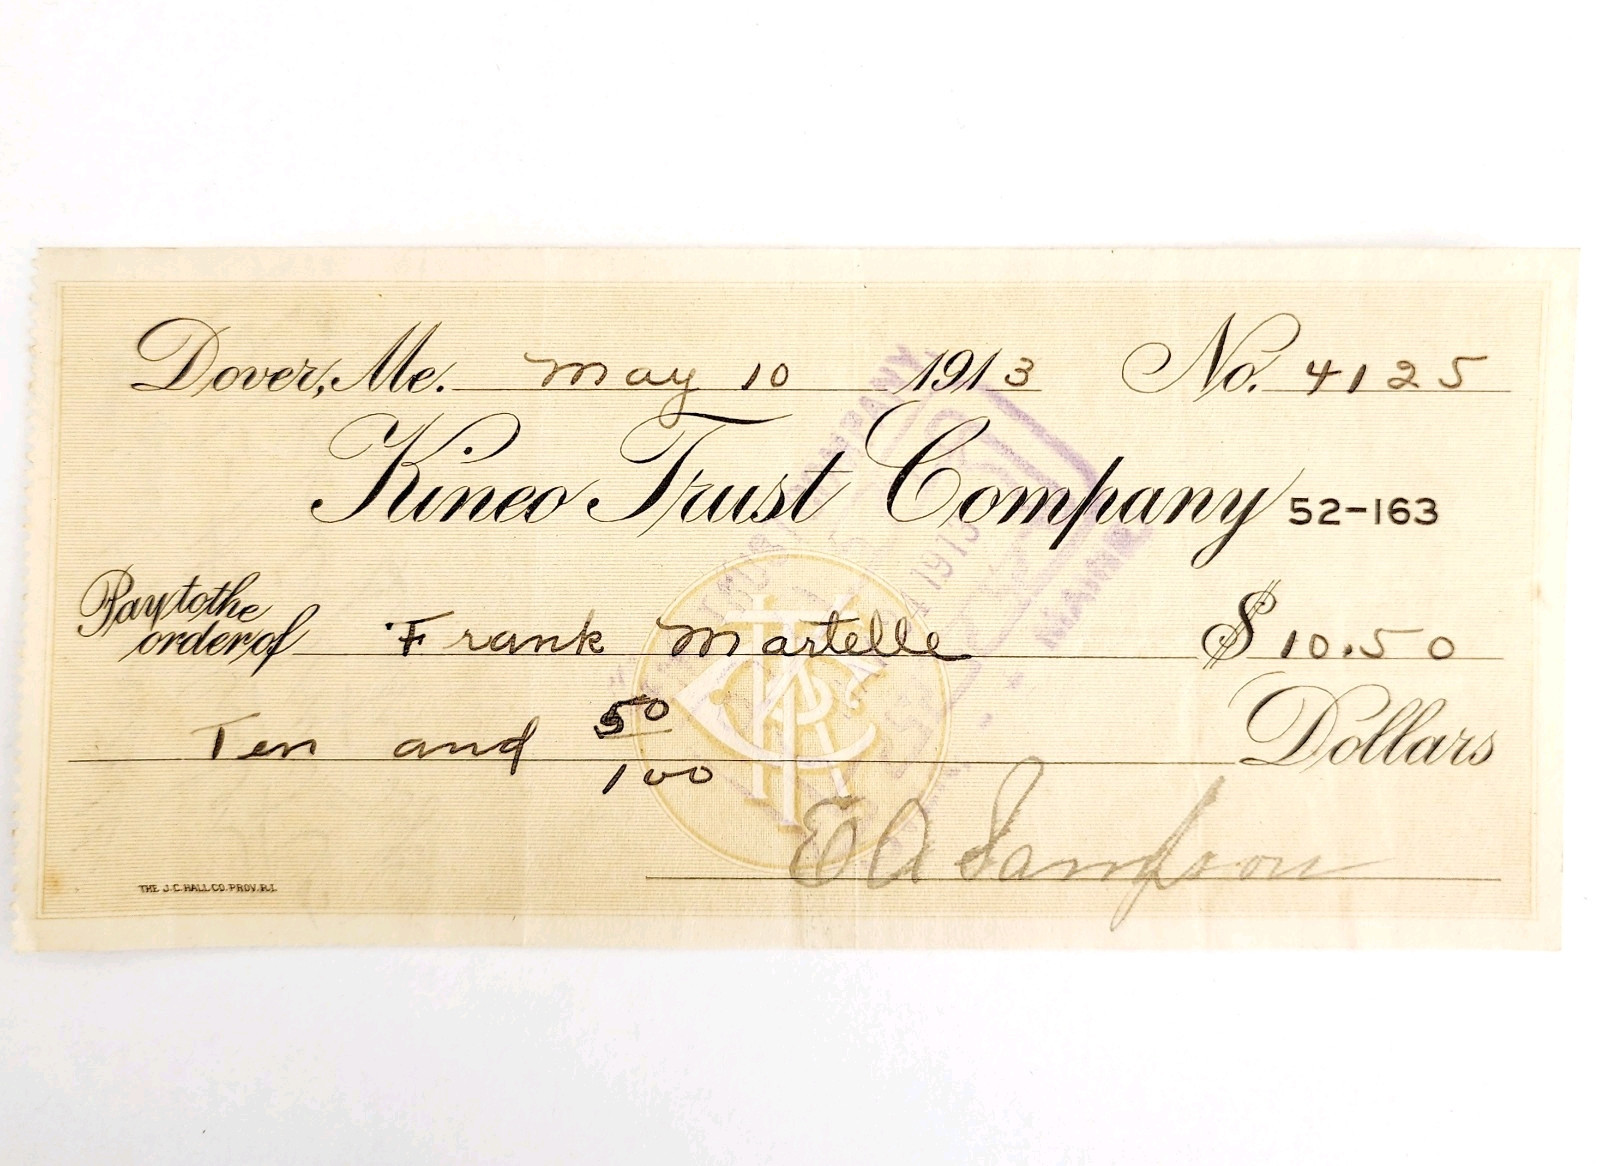 Dover, Me. May 10 1913 No. 4125
Kineo Trust Company 52-163
Pay to the
order of Frank Martelle $10.50
Ten and 50/100 Dollars
E A Sampson
THE J.C. HALL CO. PROV. R.I.